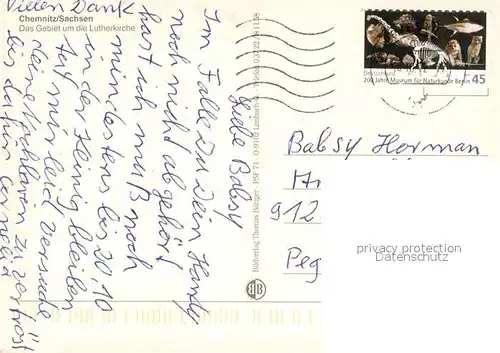 Chemnitz/Sachsen
Das Gebiet um die Lutherkirche
Vielen Dank
Liebe Babsy
Im Falle Du Dein Handy
noch nicht abgehört
hast ich muß noch
mindestens bis 20.10
in der Leinig bleiben
tut mir leid Versuche
deine Nachbarin zu
bis dahin Cornelia
Bildverlag Thomas Böttger · PSF 71 · O-9102 Limbach-O. · Telefon 03722/8 11 58
Deutschland
200 Jahre Museum für Naturkunde Berlin
45
Babsy Herman
912
Peg
privacy protection
Datenschutz